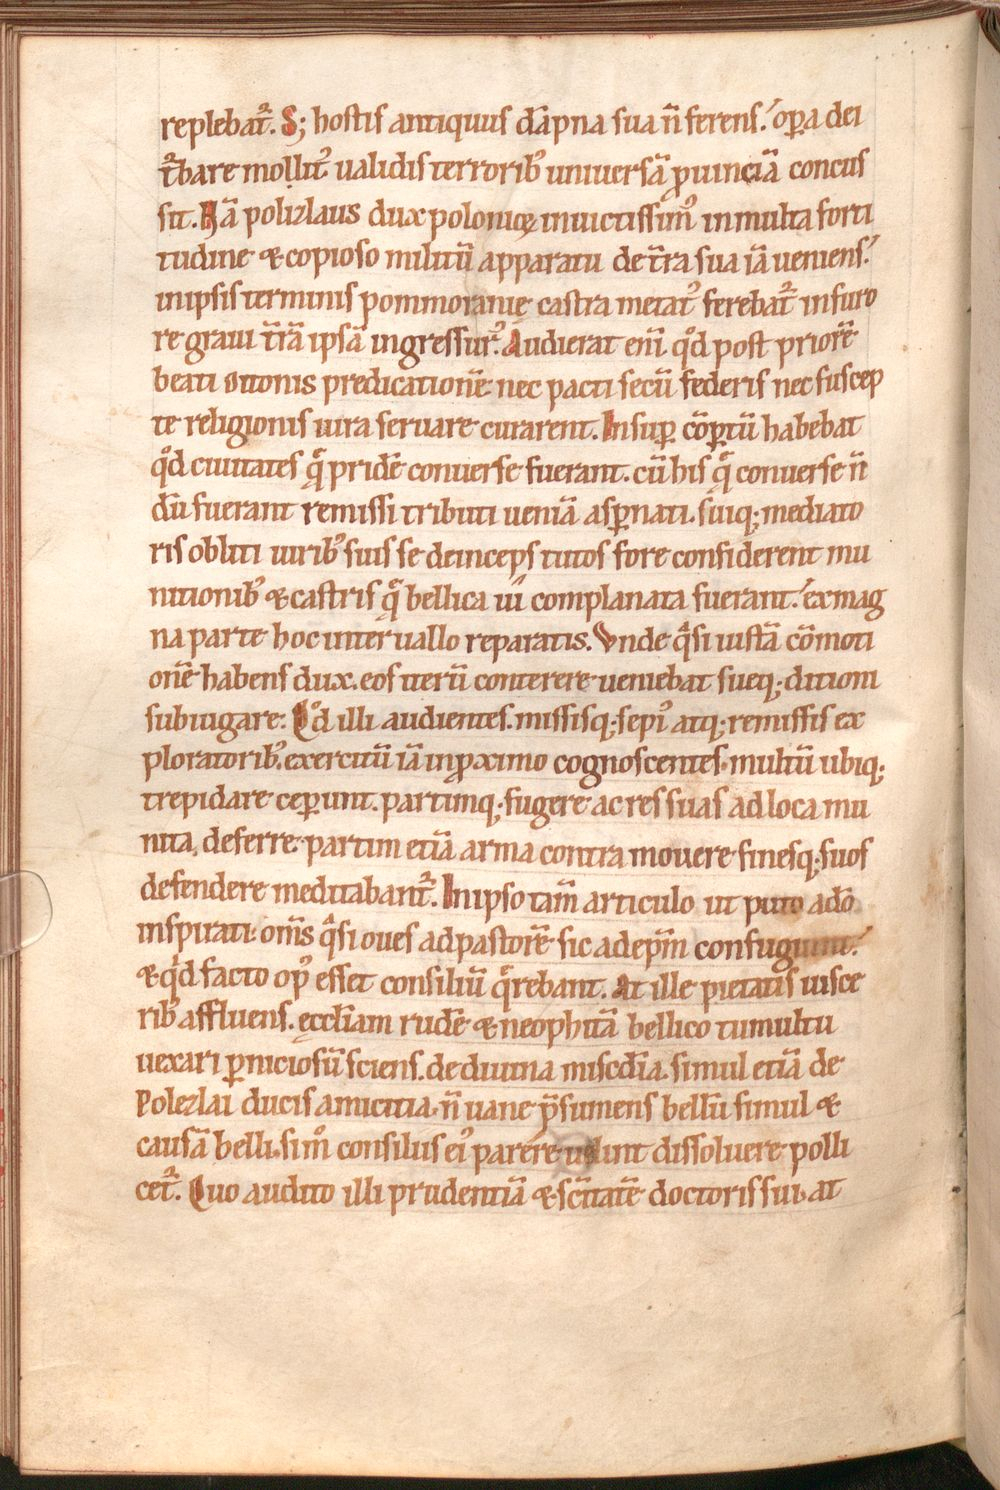 replebat᷑. S; hostis antiquus dāpna sua n̄ ferens. oꝑa dei
t᷑bare molit᷑ ualidis terroribꝰ uniuersā ꝓuinciā concus
sit. Nā polizlaus dux polonięq; inuictissimꝰ in multa forti
tudine & copioso militū apparatu de t̄ra sua iā ueniens.
in ipsis terminis pommoranię castra metatꝰ ferebat᷑ in furo
re graui t̄rā ipsā ingressurꝰ. Audierat enī qd̊ post priorē
beati ottonis predicationē nec pacti secū federis nec suscep
te religionis iura seruare curarent. Insuꝑ cōꝑtū habebat
qd̊ ciuitates q̨ͣ pridē conuerse fuerant. cū his q̨ͣ conuerse n̄
dū fuerant remissi tributi ueniā asꝑnati. suiq; mediato
ris obliti uiribꝰ suis se deinceps tutos fore considerent mu
nitionibꝰ & castris q̨ͣ bellica ui complanata fuerant. ex mag
na parte hoc interuallo reparatis. Vnde qͣsi iustā cōmoti
onē habens dux. eos iterū conterere ueniebat sueq; ditioni
subiugare. Qd̊ illi audientes. missisq; sepiꝰ atq; remissis ex
ploratoribꝰ. exercitū iā in ꝓximo cognoscentes. multū ubiq;
trepidare ceꝑunt. partimq; fugere ac res suas ad loca mu
nita deferre. partim etiā arma contra mouere finesq; suos
defendere meditabant᷑. In ipso tam̄ articulo ut puto a dō
inspirati. om̄s qͣsi oues ad pastorē sic ad ep̄m confugiunt.
& qi̇d facto opꝰ esset consiliū q̨ͣrebant. At ille pietatis uisce
ribꝰ affluens. ęccl̄iam rudē & neophitā bellico tumultu
uexari ꝑniciosū sciens. de diuina misc̄dia. simul etiā de
Polezlai ducis amicitia. n̄ uane p̄sumens bellū simul &
causā belli. si mͦ consiliis eiꝰ parere uelint dissoluere polli
cet᷑. Quo audito illi prudentiā & sc̄itatē doctoris sui. at